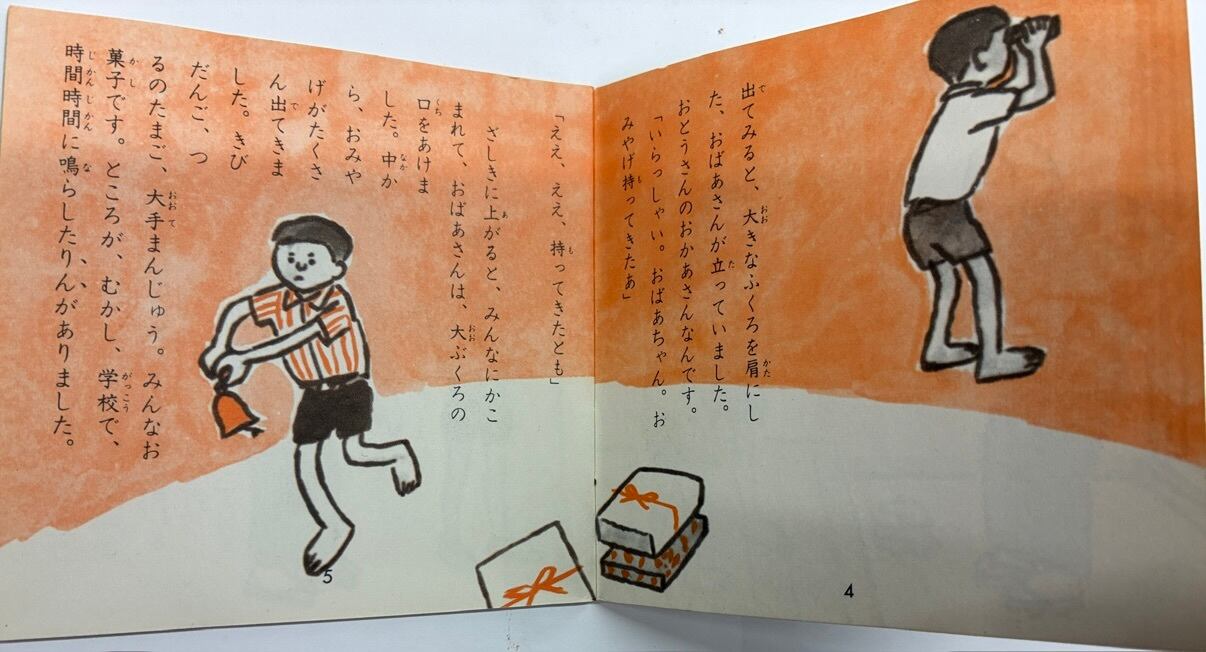 出てみると、大きなふくろを肩にし
た、おばあさんが立っていました。
おとうさんのおかあさんなんです。
「いらっしゃい。おばあちゃん。お
みやげ持ってきたあ」
4
「ええ、ええ、持ってきたとも」
ざしきに上がると、みんなにかこ
まれて、おばあさんは、大ぶくろの
口をあけま
した。中か
ら、おみや
げがたくさ
ん出てきま
した。きび
だんご、つ
るのたまご、大手まんじゅう。みんなお
菓子です。ところが、むかし、学校で、
時間時間に鳴らしたりんがありました。
5